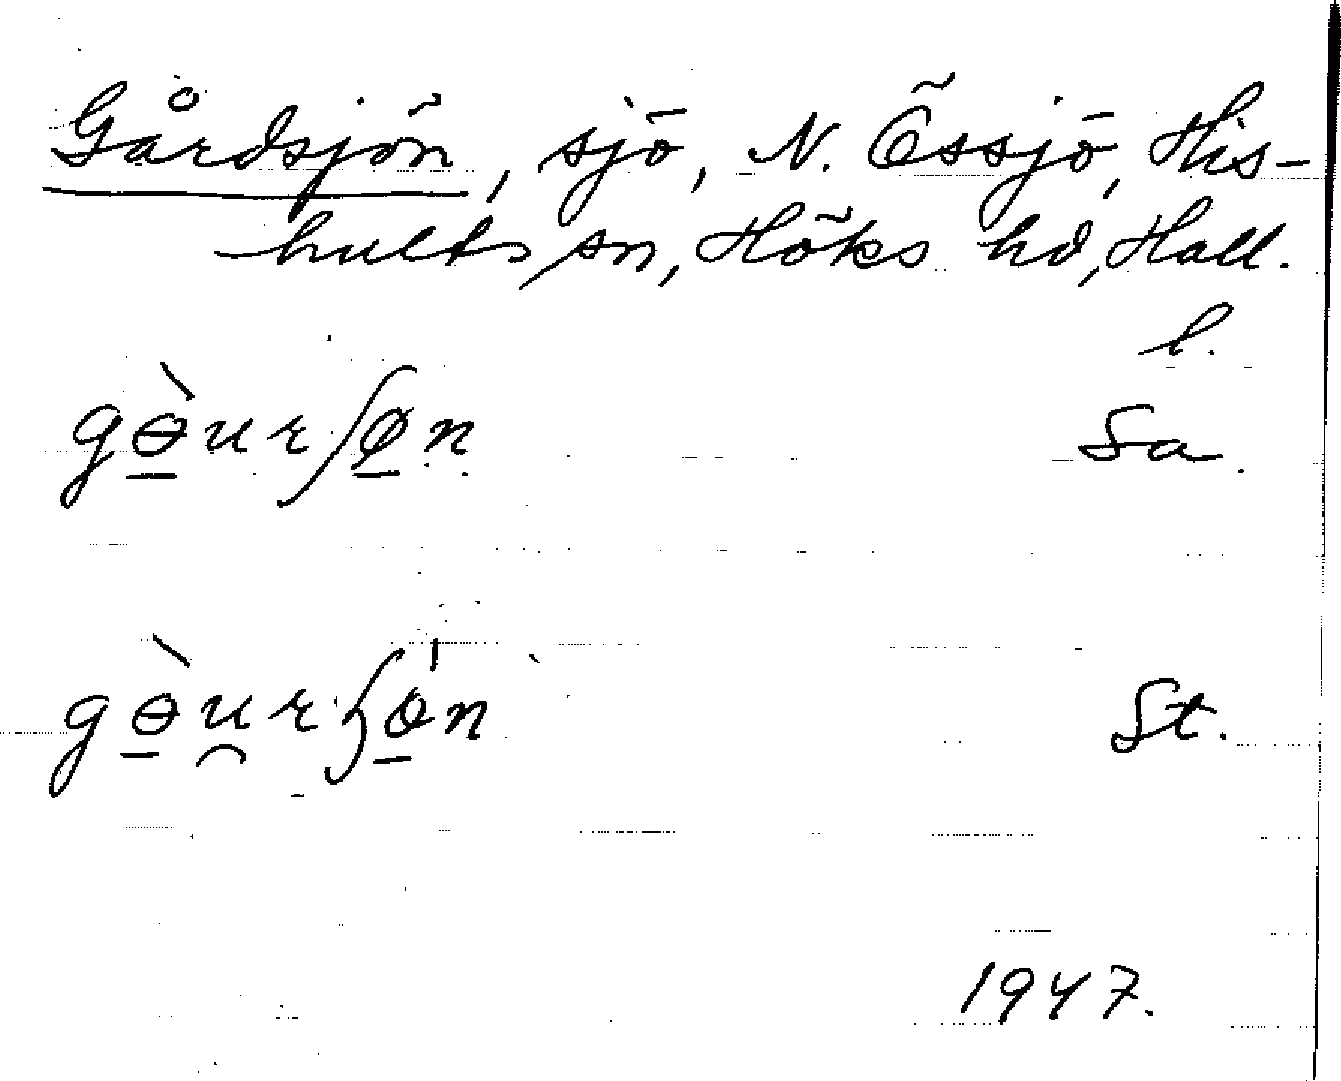 Gårdsjön, sjö, N. Össjö, His-
hults sn, Höks hd, Hall.
l.
gɵ̠̀urʃø̠n Sa.
gɵ̠̀u̯rʃó̠n St.
1947.